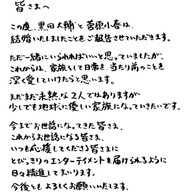 皆さまへ
この度、黒田大輔と菅原小春は、
結婚いたしましたことをご報告させていただきます。
ただ一緒にいられればいいと思っていましたが、
これからは、家族として日常を、当たり前のことを
深く愛していけたらと思います。
まだまだ未熟な2人ではありますが
少しでも地球に優しい家族になっていきたいです。
今までお世話になってきた皆さま、
これからお世話になる皆さま、
いつも応援してくださる皆さまに
とびっきりのエンターテイメントを届けられるように
日々精進してまいります。
今後ともよろしくお願いいたします。